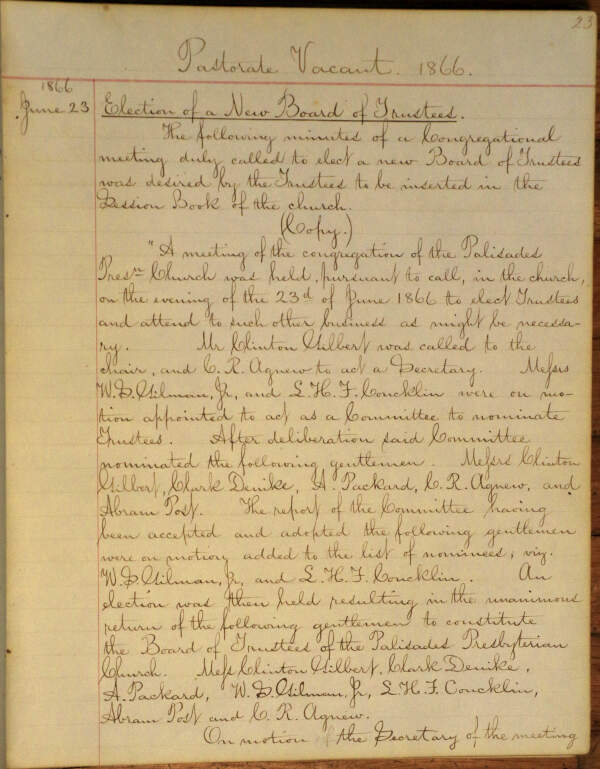 23
Pastorate Vacant. 1866.
1866
June 23
Election of a New Board of Trustees.
The following minutes of a Congregational
meeting duly called to elect a new Board of Trustees
was desired by the Trustees to be inserted in the
Session Book of the church.
(Copy.)
"A meeting of the congregation of the Palisades
Presn Church was held, pursuant to call, in the church,
on the evening of the 23d of June 1866 to elect Trustees
and attend to such other business as might be necessa-
ry. Mr Clinton Gilbert was called to the
chair, and C. R. Agnew to act a Secretary. Messrs
W. S. Gilman, Jr, and L. H. F. Concklin were on mo-
tion appointed to act as a Committee to nominate
Trustees. After deliberation said Committee
nominated the following gentlemen. Messrs Clinton
Gilbert, Clark Denike, A. Packard, C. R. Agnew, and
Abram Post. The report of the Committee having
been accepted and adopted the following gentlemen
were on motion, added to the list of nominees, viz.
W. S. Gilman, Jr, and L. H. F. Concklin. An
election was then held resulting in the unanimous
return of the following gentlemen to constitute
the Board of Trustees of the Palisades Presbyterian
Church. Mess Clinton Gilbert, Clark Denike,
A. Packard, W. S. Gilman, Jr, L. H. F. Concklin,
Abram Post and C. R. Agnew.
On motion of the Secretary of the meeting